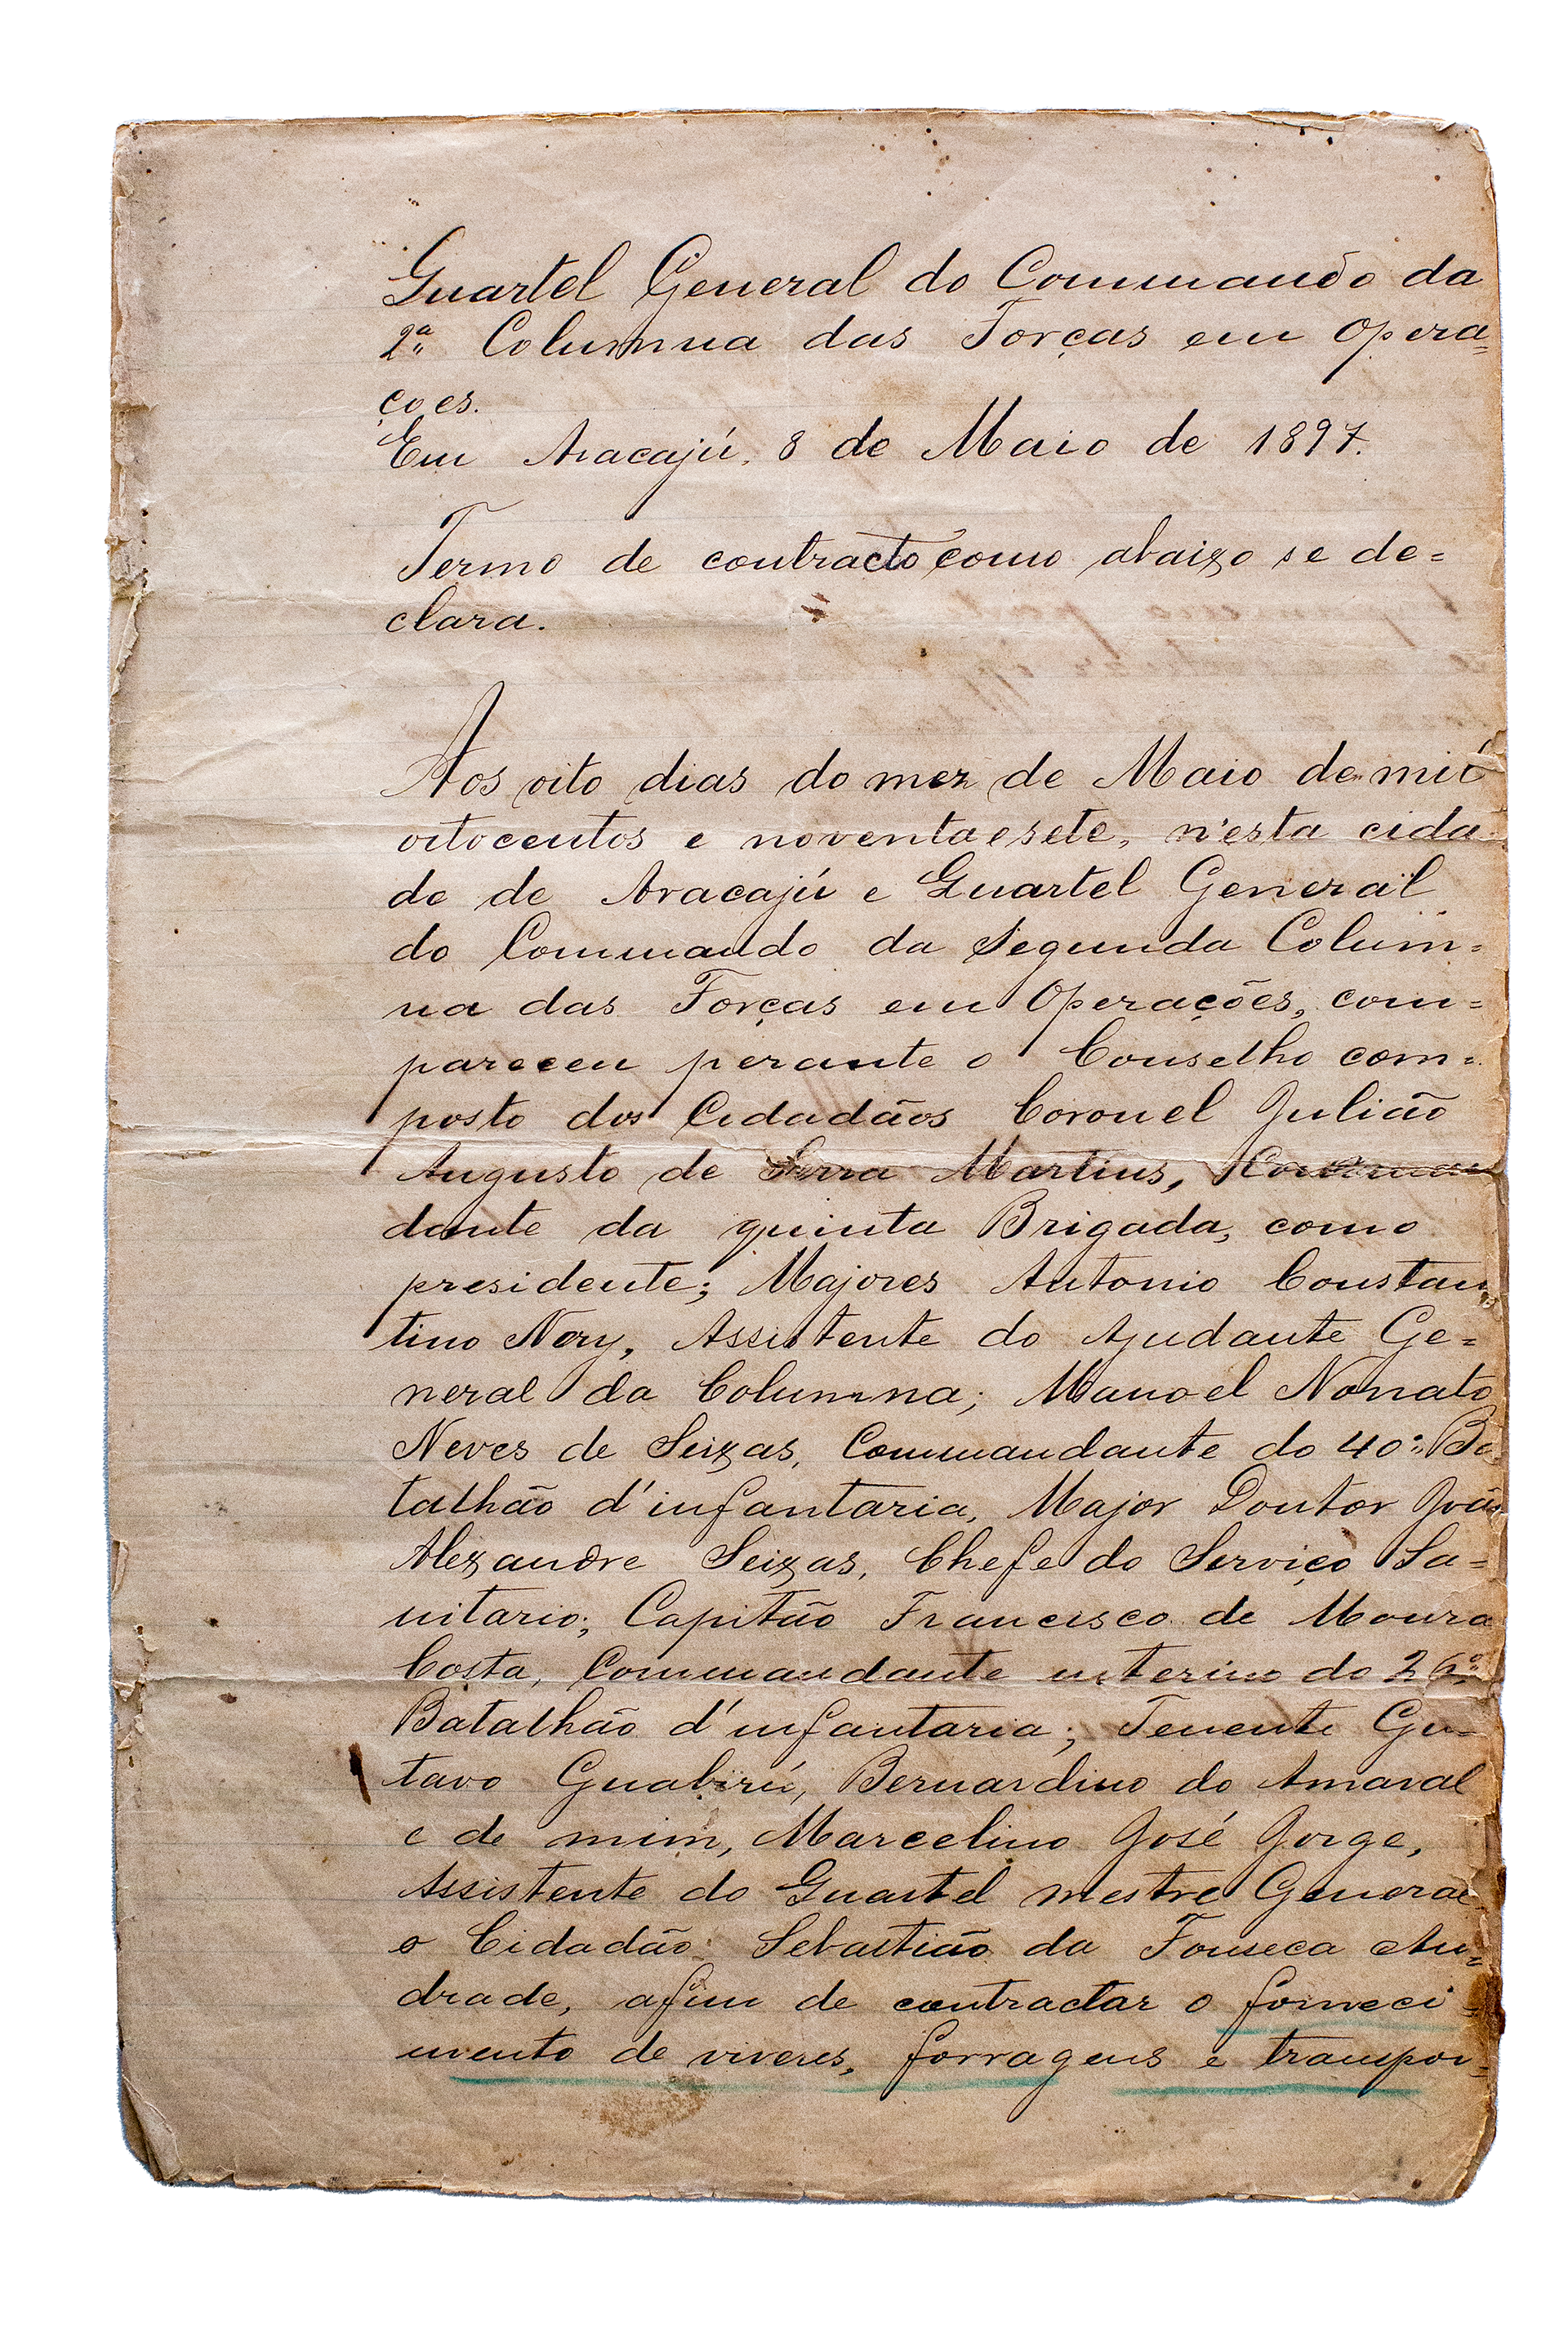 Quartel General do Commando da
2ª Columna das Forças em Opera=
ções.
Em Aracajú, 8 de Maio de 1897.
Termo de contracto como abaixo se de=
clara.
Aos oito dias do mez de Maio de mil
oitocentos e noventa e sete, n'esta cida
de de Aracajú e Quartel General
do Commando da Segunda Colum=
na das Forças em Operações, com=
pareceu perante o Conselho com=
posto dos Cidadãos Coronel Julião
Augusto de Serra Martins, Comman
dante da quinta Brigada, como
presidente; Majores Antonio Constan
tino Nery, Assistente do Ajudante Ge=
neral da Columna; Manoel Nonato
Neves de Seixas, Commandante do 40º Ba
talhão d'infantaria, Major Doutor João
Alexandre Seixas, Chefe do Serviço Sa=
nitario; Capitão Francisco de Moura
Costa, Commandante interino do 26º
Batalhão d'infantaria; Tenente Gus
tavo Guabirú, Bernardino do Amaral
e de mim, Marcelino José Jorge,
Assistente do Quartel mestre General
o Cidadão Sebastião da Fonseca An=
drade, afim de contractar o forneci=
mento de viveres, forragens e transpor=